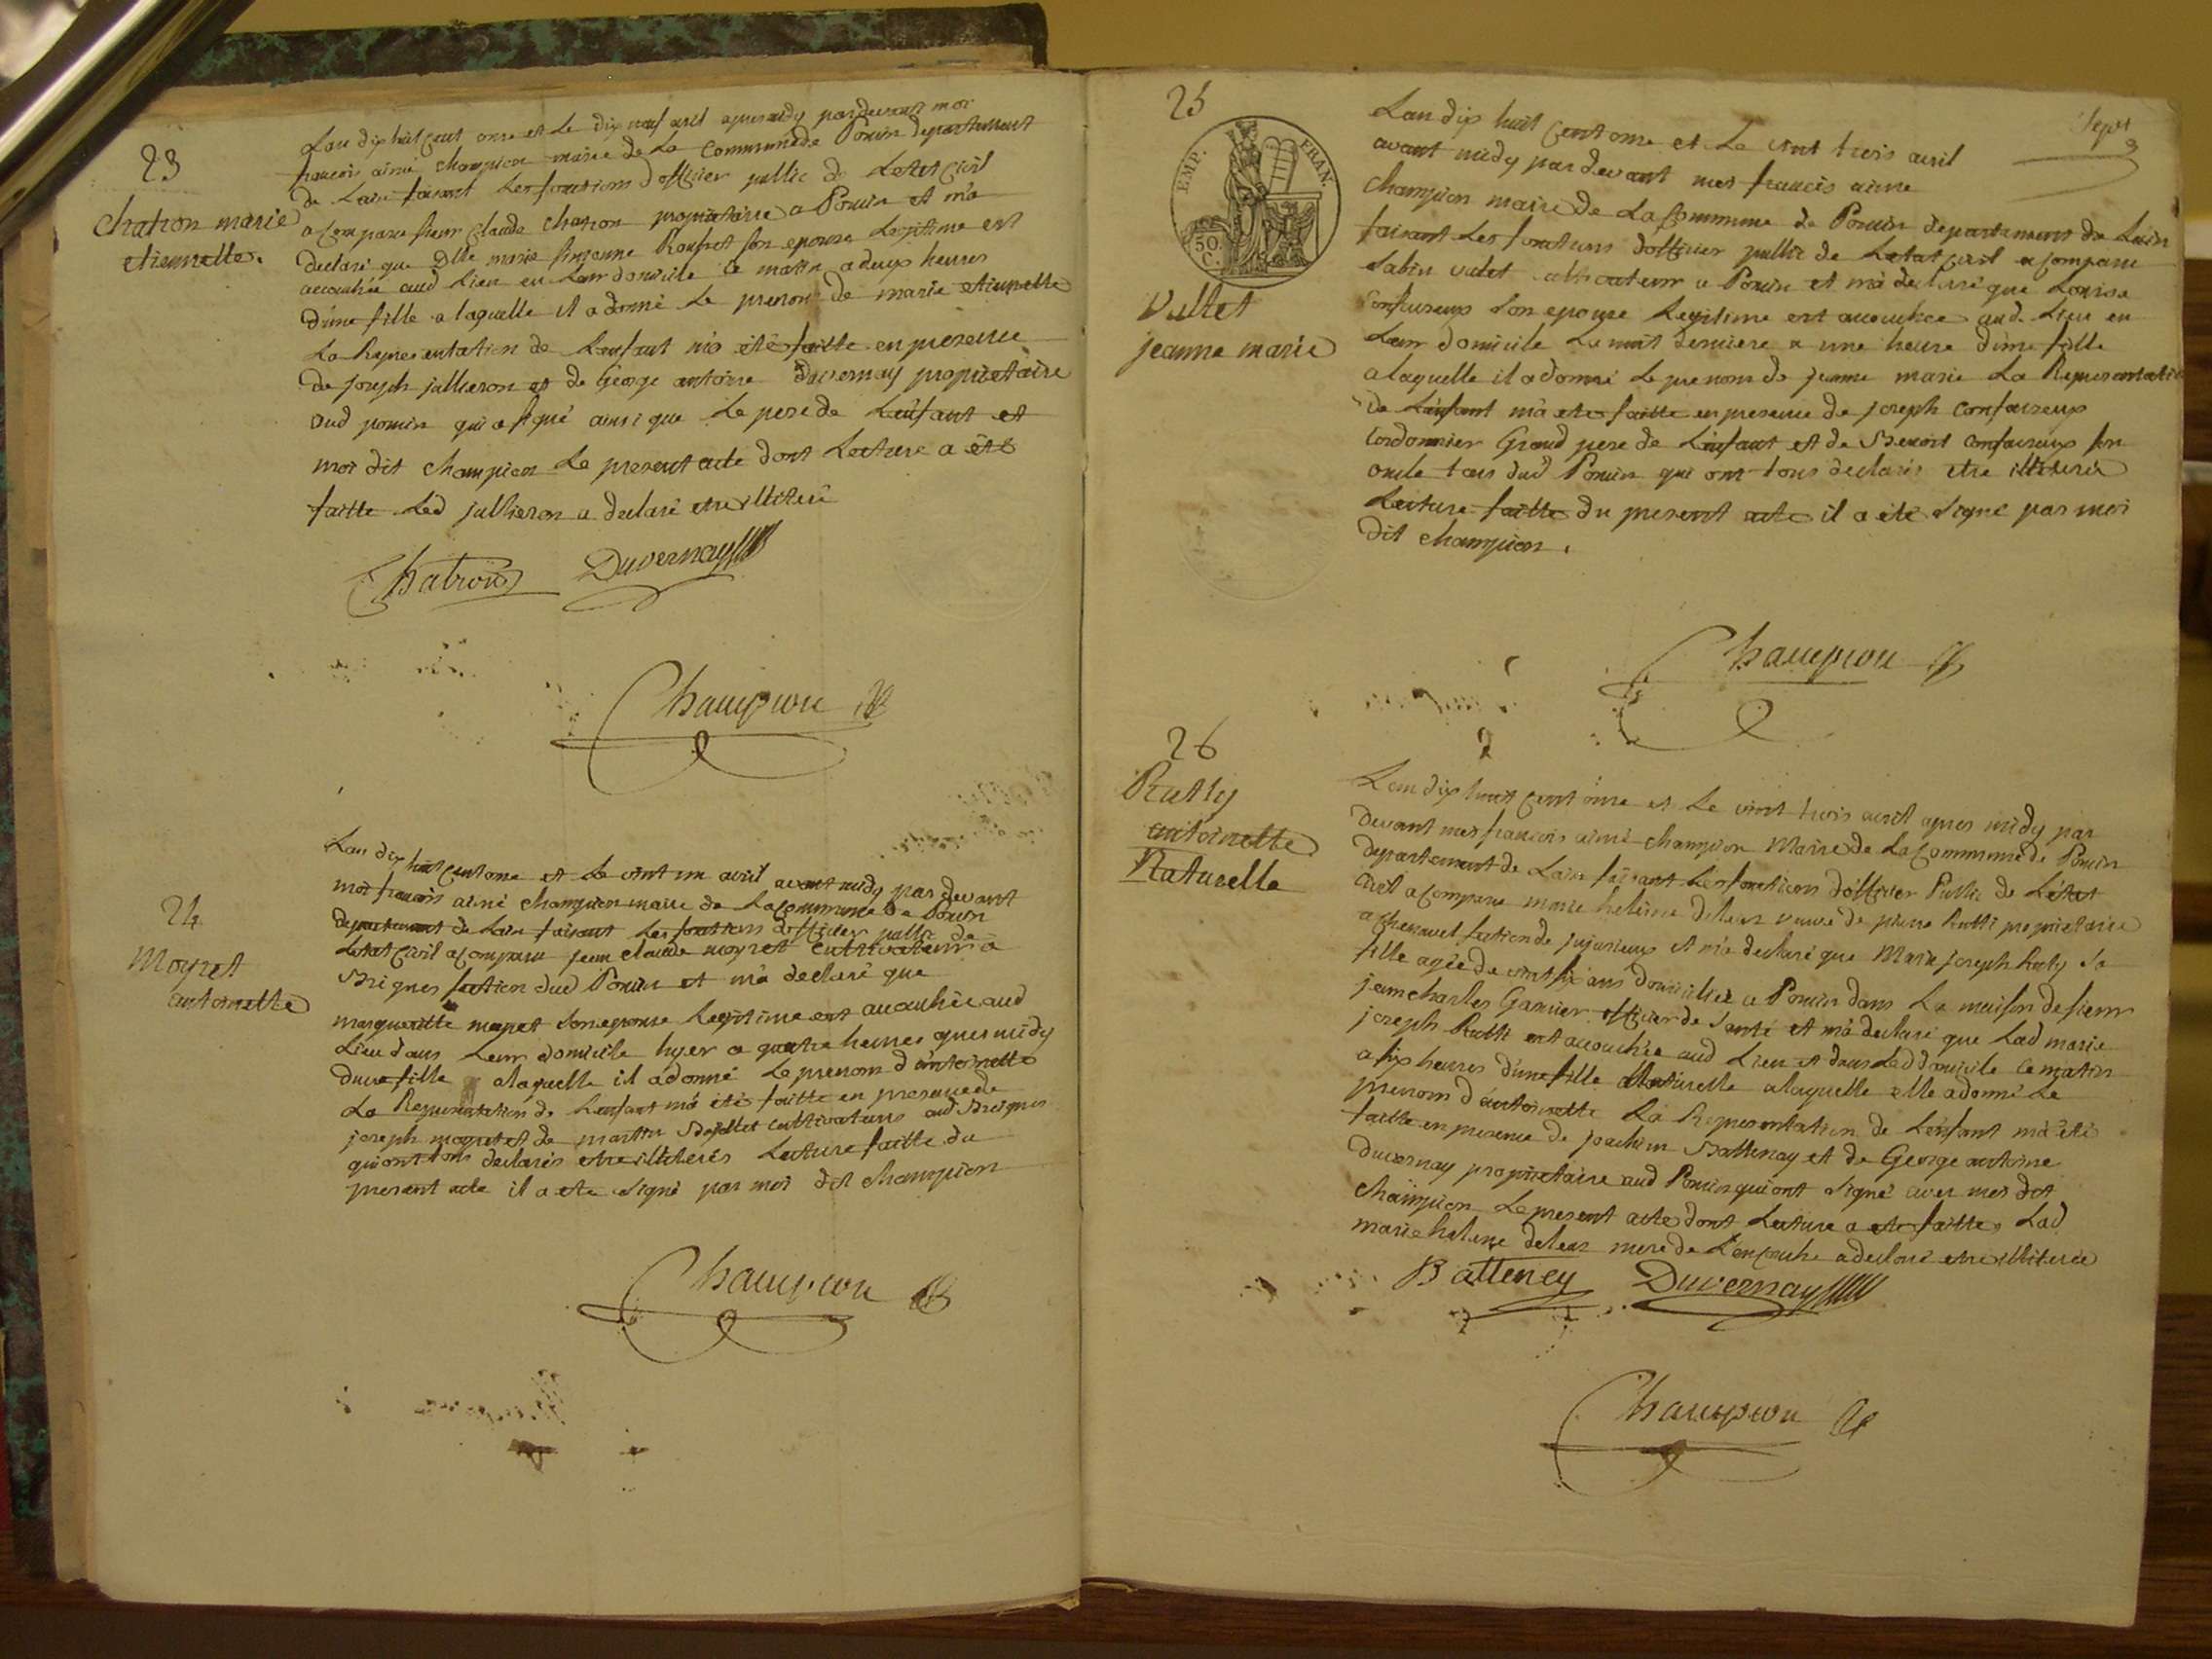 23
Chatron marie
etiennette.
Lan dix huit cent onze et le dix neuf avril apres midy pardevant moi
francois aimé champion maire de La Commune de Poncin departement
de Lain faisant Les fonctions dofficier public de Letat Civil
a comparu sieur Claude Chatron propriétaire a Poncin et m'a
declaré que Dlle marie son epouse Legitime est
accouchée aud Lieu en Leur domicile ce matin a deux heures
d'une fille a laquelle il a donné Le prenom de marie etiennette
La Representation de Lenfant m'a été faitte en presence
de joseph jullieron et de George antoine duvernay propriétaire
dud poncin qui a signé ainsi que Le pere de L'enfant et
moi dit champion Le present acte dont Lecture a été
faitte Led jullieron a declaré etre illiteré
Chatron Duvernay
Champion
24
Moyret
antoinette
Lan dix huit cent onze et Le vint un avril avant midy par devant
moi francois aimé champion maire de La Commune de Poncin
departement de Lain faisant Les fonctions dofficier public de
Letat Civil a comparu jean claude moyret cultivateur a
Brignes section dud Poncin et m'a declaré que
margueritte son epouse Legitime est accouchée aud
Lieu dans Leur domicile hyer a quatre heures apres midy
dune fille a laquelle il a donné Le prenom d'antoinette
La Representation de Lenfant m'a été faitte en presence de
joseph moyret et de martin cultivateurs aud Breignes
qui ont tous declarés etre illiterés Lecture faitte du
present acte il a ete signé par moi dit champion
Champion
25
EMP. FRAN.
50 C.
Vullet
jeanne marie
Sept
Lan dix huit cent onze et Le vint trois avril
avant midy par devant moi francois aimé
champion maire de La Commune de Poncin departement de Lain
faisant Les fonctions dofficier public de Letat Civil a comparu
Sabin vulet cultivateur a Poncin et m'a declaré que Louise
Confaureux son epouse Legitime est accouchée aud. Lieu en
Leur domicile La nuit derniere a une heure d'une fille
a laquelle il a donné Le prenom de jeanne marie La Representation
de L'enfant m'a ete faitte en presence de joseph Confaureux
Cordonnier Grand pere de L'enfant et de Benoit Confaureux son
oncle tous dud Poncin qui ont tous declarés etre illiterés
Lecture faitte du present acte il a eté signé par moi
dit champion.
Champion
26
Rutty
antoinette
Naturelle
Lan dix huit cent onze et Le vint trois avril apres midy par
devant moi francois aimé champion Maire de La Commune de Poncin
departement de Lain faisant Les fonctions d'officier Public de L'état
Civil a comparu marie helene veuve de pierre Rutti propriétaire
a section de jujurieux et m'a declaré que Marie joseph Ruty sa
fille agée de vint six ans domiciliée a Poncin dans La maison de sieur
jean charles Garnier officier de Santé et m'a declaré que Lad marie
joseph Rutti est accouchée aud Lieu et dans Led domicile ce matin
a six heures d'une fille Naturelle a laquelle elle a donné Le
prenom d'antoinette La Representation de L'enfant m'a été
faitte en presence de joachim Battenay et de George antoine
duvernay propriétaire aud Poncin qui ont signé avec moi dit
champion Le present acte dont Lecture a ete faitte Lad
marie helene mere de L'encouche a declaré etre illiterée
Batteney Duvernay
Champion